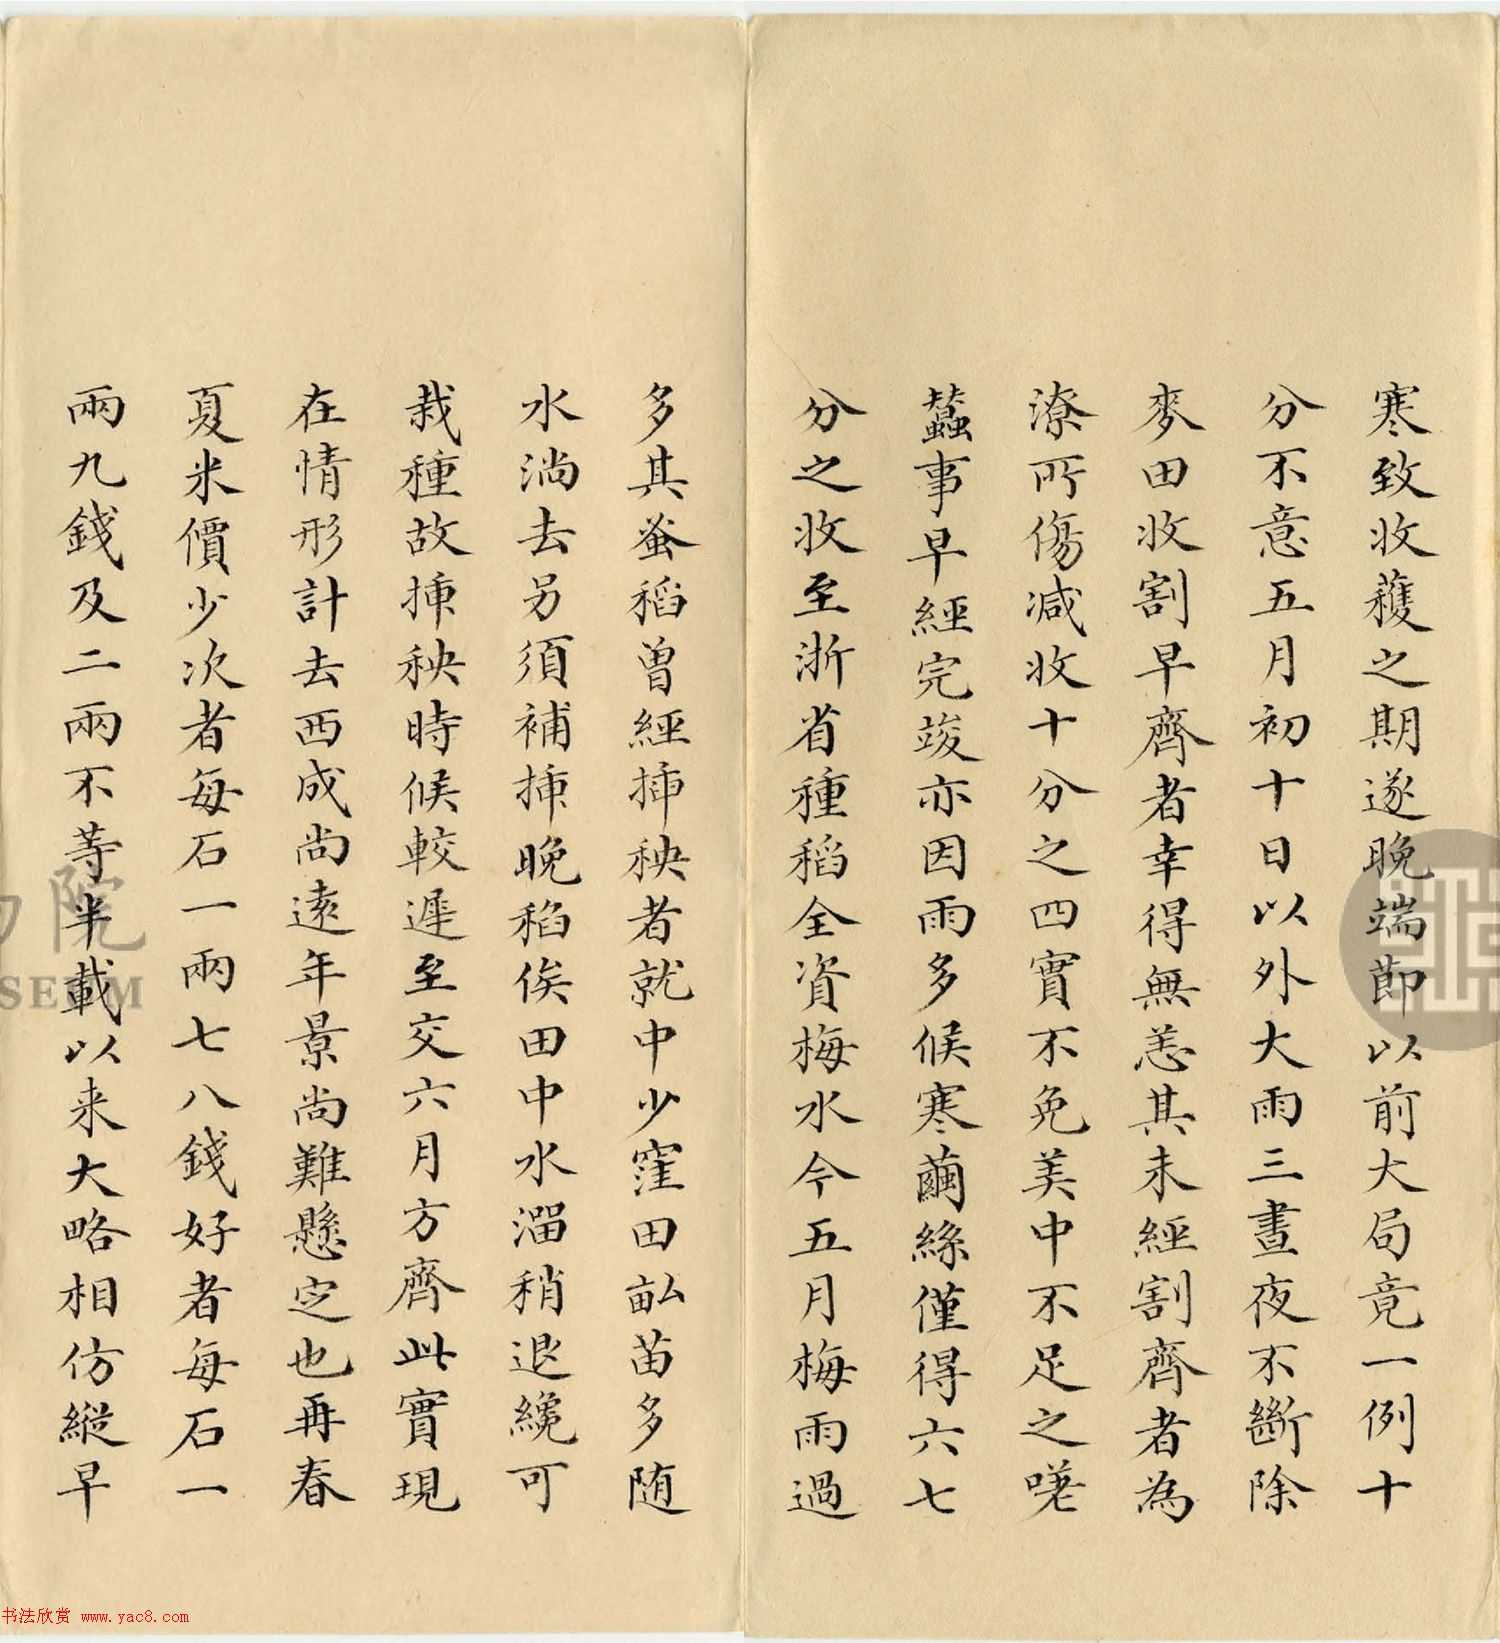 寒致收穫之期遂晚端節以前大局竟一例十
分不意五月初十日以外大雨三晝夜不斷除
麥田收割早齊者幸得無恙其未經割齊者為
潦所傷减收十分之四實不免美中不足之嘆
蠶事早經完竣亦因雨多候寒繭絲僅得六七
分之收至浙省種稻全資梅水今五月梅雨過
多其蚤稻曾經揷秧者就中少窪田畝苗多随
水淌去另須補揷晚稻俟田中水溜稍退纔可
栽種故揷秧時候較遲至交六月方齊此實現
在情形計去西成尚遠年景尚難懸定也再春
夏米價少次者每石一兩七八錢好者每石一
兩九錢及二兩不等半載以来大略相仿縱早
院
SEUM
书法欣赏 www.yac8.com